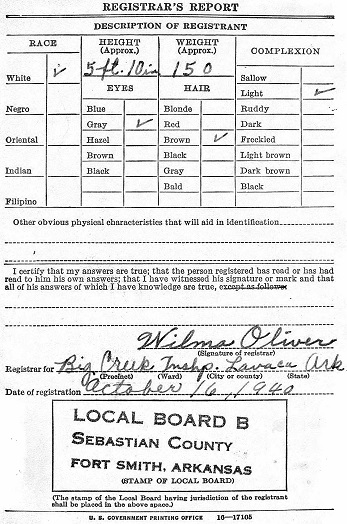 REGISTRAR'S REPORT
DESCRIPTION OF REGISTRANT
RACE HEIGHT (Approx.) WEIGHT (Approx.) COMPLEXION
White ✓ 5 ft. 10 in 150 Sallow
EYES HAIR Light ✓
Negro Blue Blonde Ruddy
Gray ✓ Red Dark
Oriental Hazel Brown ✓ Freckled
Brown Black Light brown
Indian Black Gray Dark brown
Bald Black
Filipino
Other obvious physical characteristics that will aid in identification
I certify that my answers are true; that the person registered has read or has had
read to him his own answers; that I have witnessed his signature or mark and that
all of his answers of which I have knowledge are true, except as follows:
Wilma Oliver
(Signature of registrar)
Registrar for Big Creek Twshp. Lavaca Ark
(Precinct) (Ward) (City or county) (State)
Date of registration October 16, 1940
LOCAL BOARD B
SEBASTIAN COUNTY
FORT SMITH, ARKANSAS
(STAMP OF LOCAL BOARD)
(The stamp of the Local Board having jurisdiction of the registrant
shall be placed in the above space.)
U. S. GOVERNMENT PRINTING OFFICE 16—17105